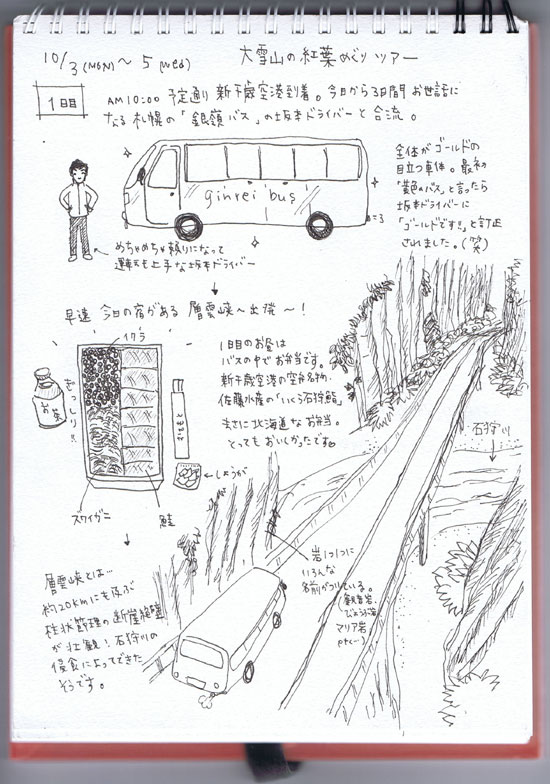 10/3(MON)〜5(WED) 大雪山の紅葉めぐりツアー
1日目
AM10:00 予定通り新千歳空港到着。今日から3日間お世話に
なる札幌の「銀嶺バス」の坂本ドライバーと合流。
全体がゴールドの
目立つ車体。最初
「黄色いバス」と言ったら
坂本ドライバーに
「ゴールドです!!」と訂正
されました。(笑)
ginrei bus
めちゃめちゃ頼りになって
運転も上手な坂本ドライバー
早速 今日の宿がある 層雲峡へ出発〜!
イクラ
お茶
ぎっしり!!
おてもと
しょうが
ズワイガニ
鮭
1日目のお昼は
バスの中でお弁当です。
新千歳空港の空弁名物、
佐藤水産の「いくら石狩鮨」
まさに北海道なお弁当。
とってもおいしかったです
石狩川
層雲峡とは…
約20kmにも及ぶ
柱状節理の断崖絶壁
が壮観!石狩川の
侵食によってできた
そうです。
岩1つ1つに
いろんな
名前がついている。
マリア岩
etc…)